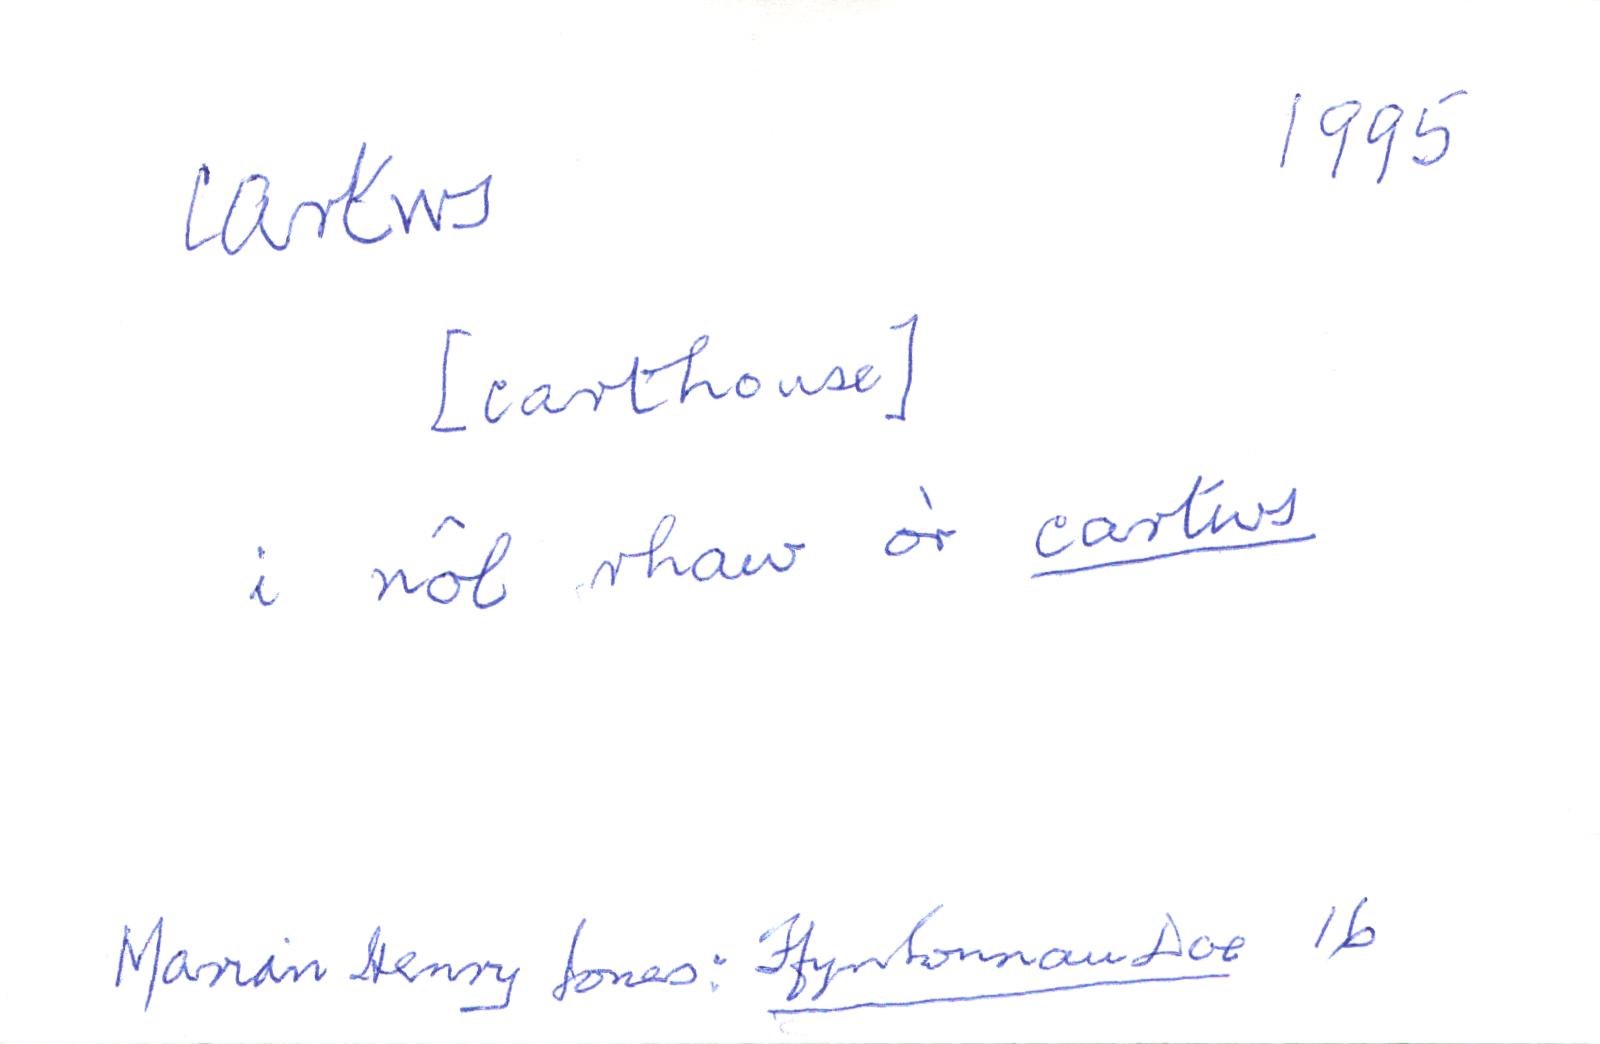 1995
cartws
[carthouse]
i nôl rhaw o'r cartws
Marian Henry Jones: Ffynhonnau Doe 16